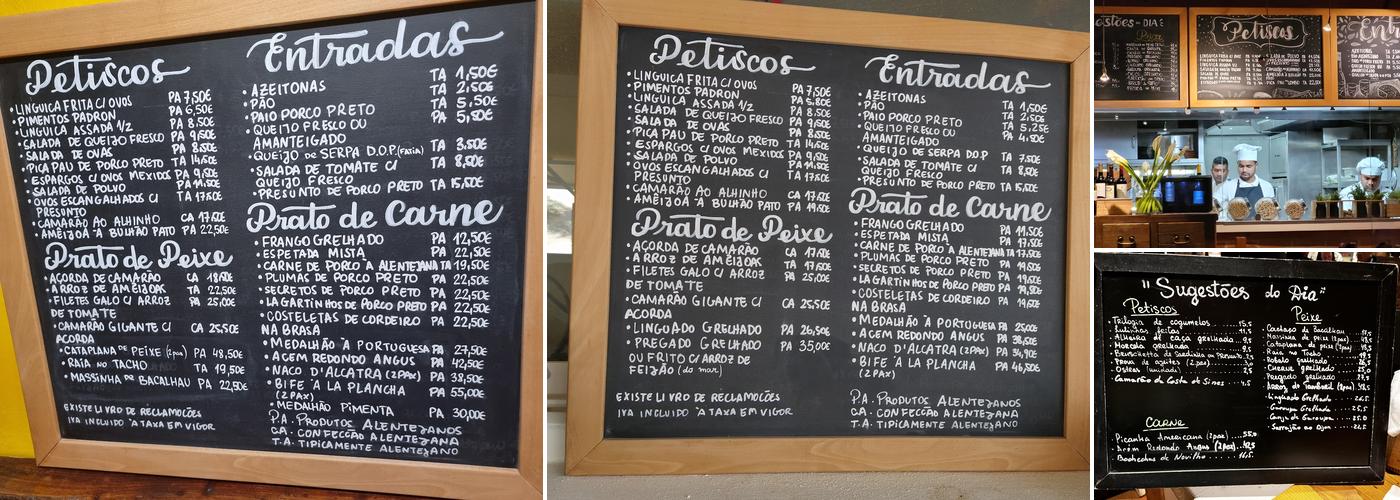 Petiscos
• LINGUICA FRITA C/ OVOS PA 7,50€
• PIMENTOS PADRON PA 6,50€
• LINGUICA ASSADA 1/2 PA 8,50€
• SALADA DE QUEIJO FRESCO PA 9,50€
• SALADA DE OVAS PA 8,50€
• PICA PAU DE PORCO PRETO TA 14,50€
• ESPARGOS C/ OVOS MEXIDOS PA 9,50€
• SALADA DE POLVO PA 11,50€
• OVOS ESCANGALHADOS C/ TA 17,50€
PRESUNTO
• CAMARÃO AO ALHINHO CA 17,50€
• AMÊIJOA À BULHÃO PATO PA 22,50€
Prato de Peixe
• AÇORDA DE CAMARÃO CA 18,50€
• ARROZ DE AMÊIJOAS TA 22,50€
• FILETES GALO C/ ARROZ PA 25,00€
DE TOMATE
• CAMARÃO GIGANTE C/ CA 25,50€
AÇORDA
• CATAPLANA DE PEIXE (2pax) PA 48,50€
• RAIA NO TACHO TA 19,50€
• MASSINHA DE BACALHAU PA 22,50€
EXISTE LIVRO DE RECLAMAÇÕES
IVA INCLUIDO À TAXA EM VIGOR
Entradas
• AZEITONAS TA 1,50€
• PÃO TA 2,50€
• PAIO PORCO PRETO TA 5,50€
• QUEIJO FRESCO OU PA 5,50€
AMANTEIGADO
• QUEIJO DE SERPA D.O.P. (Fatia) TA 3.50€
• SALADA DE TOMATE C/ TA 8,50€
QUEIJO FRESCO
• PRESUNTO DE PORCO PRETO TA 15,50€
Prato de Carne
• FRANGO GRELHADO PA 12,50€
• ESPETADA MISTA PA 22,50€
• CARNE DE PORCO À ALENTEJANA TA 19,50€
• PLUMAS DE PORCO PRETO PA 22,50€
• SECRETOS DE PORCO PRETO PA 22,50€
• LAGARTINHOS DE PORCO PRETO PA 22,50€
• COSTELETAS DE CORDEIRO PA 22,50€
NA BRASA
• MEDALHÃO À PORTUGUESA PA 27,50€
• ACEM REDONDO ANGUS PA 42,50€
• NACO D'ALCATRA (2PAX) PA 38,50€
• BIFE À LA PLANCHA PA 55,00€
(2PAX)
• MEDALHÃO PIMENTA PA 30,00€
P.A. PRODUTOS ALENTEJANOS
C.A. CONFECÇÃO ALENTEJANA
T.A. TIPICAMENTE ALENTEJANO
Petiscos
• LINGUICA FRITA C/ OVOS PA 7,50€
• PIMENTOS PADRON PA 5.80€
• LINGUICA ASSADA 1/2 PA 8,50€
• SALADA DE QUEIJO FRESCO PA 9,50€
• SALADA DE OVAS PA 8,50€
• PICA PAU DE PORCO PRETO TA 14,50€
• ESPARGOS C/ OVOS MEXIDOS PA 9,50€
• SALADA DE POLVO PA 11,50€
• OVOS ESCANGALHADOS C/ TA 17,50€
PRESUNTO
• CAMARÃO AO ALHINHO CA 17,50€
• AMÊIJOA À BULHÃO PATO PA 19,50€
Prato de Peixe
• AÇORDA DE CAMARÃO CA 17,50€
• ARROZ DE AMÊIJOAS TA 17,50€
• FILETES GALO C/ ARROZ PA 25,00€
DE TOMATE
• CAMARÃO GIGANTE C/ CA 25,50€
AÇORDA
• LINGUADO GRELHADO PA 26,50€
• PREGADO GRELHADO PA 35,00€
OU FRITO C/ ARROZ DE
FEIJÃO (do mar)
EXISTE LIVRO DE RECLAMAÇÕES
IVA INCLUIDO À TAXA EM VIGOR
Entradas
• AZEITONAS TA 1,50€
• PÃO TA 2,50€
• PAIO PORCO PRETO TA 5,25€
• QUEIJO FRESCO OU PA 4,50€
AMANTEIGADO
• QUEIJO DE SERPA D.O.P TA 7.50€
• SALADA DE TOMATE C/ TA 8,50€
QUEIJO FRESCO
• PRESUNTO DE PORCO PRETO TA 15,50€
Prato de Carne
• FRANGO GRELHADO PA 11,50€
• ESPETADA MISTA PA 17,50€
• CARNE DE PORCO À ALENTEJANA TA 17,50€
• PLUMAS DE PORCO PRETO PA 19,50€
• SECRETOS DE PORCO PRETO PA 19,50€
• LAGARTINHOS DE PORCO PRETO PA 19,50€
• COSTELETAS DE CORDEIRO PA 19,50€
NA BRASA
• MEDALHÃO À PORTUGUESA PA 25,00€
• ACEM REDONDO ANGUS PA 38,50€
• NACO D'ALCATRA (2PAX) PA 34,90€
• BIFE À LA PLANCHA PA 46,50€
(2PAX)
P.A. PRODUTOS ALENTEJANOS
C.A. CONFECÇÃO ALENTEJANA
T.A. TIPICAMENTE ALENTEJANO
Petiscos
"Sugestões do Dia"
Petiscos
• Trilogia de cogumelos
• Alheira de caça grelhada
• Ostras (unidade)
• Camarão da Costa de Sines
Carne
• Picanha Americana (2pax)
• Acém Redondo Angus (2pax)
• Bochechas de Novilho
Peixe
• Cataplana de peixe (2pax)
• Raia no Tacho
• Robalo grelhado
• Cherne grelhado
• Pregado grelhado
• Arroz de Tamboril (2pax)
• Linguado Grelhado
• Garoupa Grelhada
• Canja de Garoupa